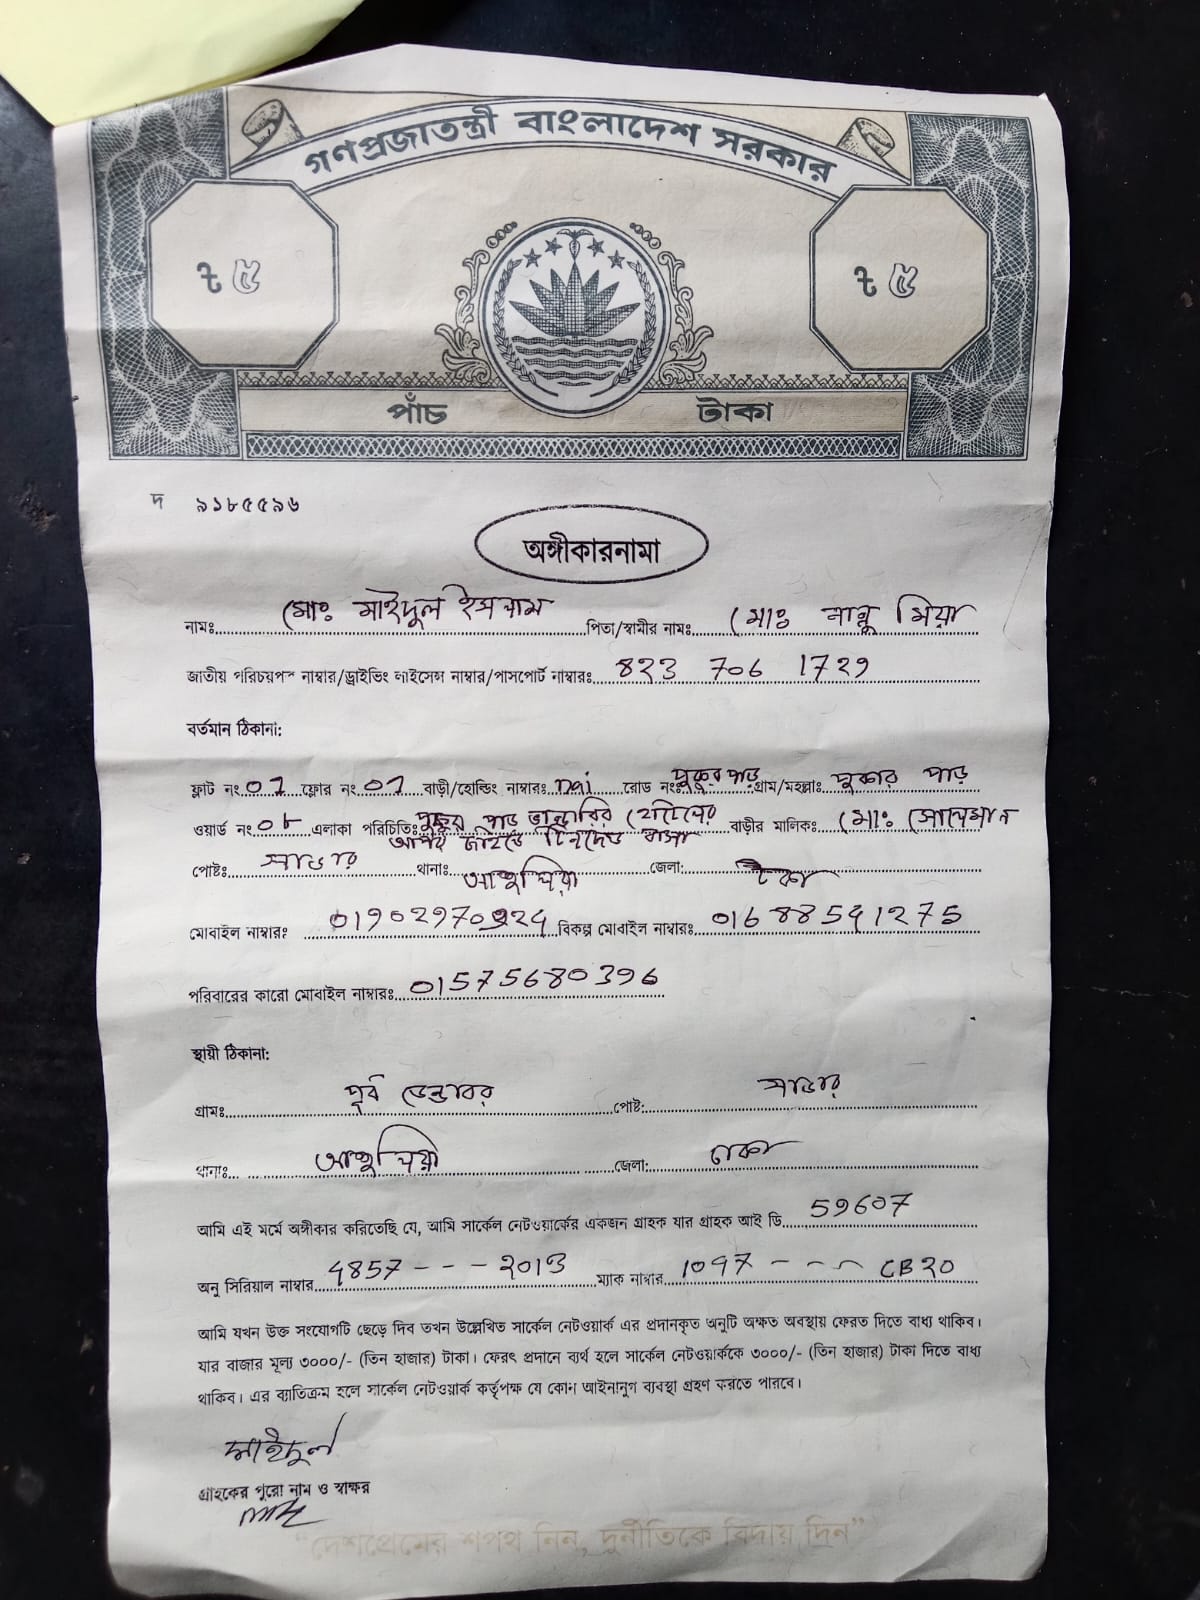 গণপ্রজাতন্ত্রী বাংলাদেশ সরকার
৳ ৫ ৳ ৫
পাঁচ টাকা
দ ৯১৮৫৫৯৬
অঙ্গীকারনামা
নামঃ মোঃ মাইদুল ইসলাম পিতা/স্বামীর নামঃ মোঃ নান্নু মিয়া
জাতীয় পরিচয়পত্র নাম্বার/ড্রাইভিং লাইসেন্স নাম্বার/পাসপোর্ট নাম্বারঃ 823 706 1729
বর্তমান ঠিকানা:
ফ্লাট নং 01 ফ্লোর নং 01 বাড়ী/হোল্ডিং নাম্বারঃ nai রোড নংঃ পুকুর পাড় গ্রাম/মহল্লাঃ পুকার পাড়
ওয়ার্ড নং 08 এলাকা পরিচিতিঃ পুকুর পাড় ভান্ডারির হোটেলের বাড়ীর মালিকঃ মোঃ সোলেমান
বাসা
পোষ্টঃ সাভার থানাঃ আশুলিয়া জেলা: ঢাকা
মোবাইল নাম্বারঃ 01902970924 বিকল্প মোবাইল নাম্বারঃ 01688541275
পরিবারের কারো মোবাইল নাম্বারঃ 01575680396
স্থায়ী ঠিকানা:
গ্রামঃ পূর্ব ডেন্ডাবর পোষ্ট: সাভার
থানাঃ আশুলিয়া জেলা: ঢাকা
আমি এই মর্মে অঙ্গীকার করিতেছি যে, আমি সার্কেল নেটওয়ার্কের একজন গ্রাহক যার গ্রাহক আই ডি 59607
অনু সিরিয়াল নাম্বার 4857 - - - 2013 ম্যাক নাম্বার 1097 - - - CB20
আমি যখন উক্ত সংযোগটি ছেড়ে দিব তখন উল্লেখিত সার্কেল নেটওয়ার্ক এর প্রদানকৃত অনুটি অক্ষত অবস্থায় ফেরত দিতে বাধ্য থাকিব।
যার বাজার মূল্য ৩০০০/- (তিন হাজার) টাকা। ফেরৎ প্রদানে ব্যর্থ হলে সার্কেল নেটওয়ার্ককে ৩০০০/- (তিন হাজার) টাকা দিতে বাধ্য
থাকিব। এর ব্যাতিক্রম হলে সার্কেল নেটওয়ার্ক কর্তৃপক্ষ যে কোন আইনানুগ ব্যবস্থা গ্রহণ করতে পারবে।
মাইদুল
গ্রাহকের পুরো নাম ও স্বাক্ষর
“দেশপ্রেমের শপথ নিন, দুর্নীতিকে বিদায় দিন”